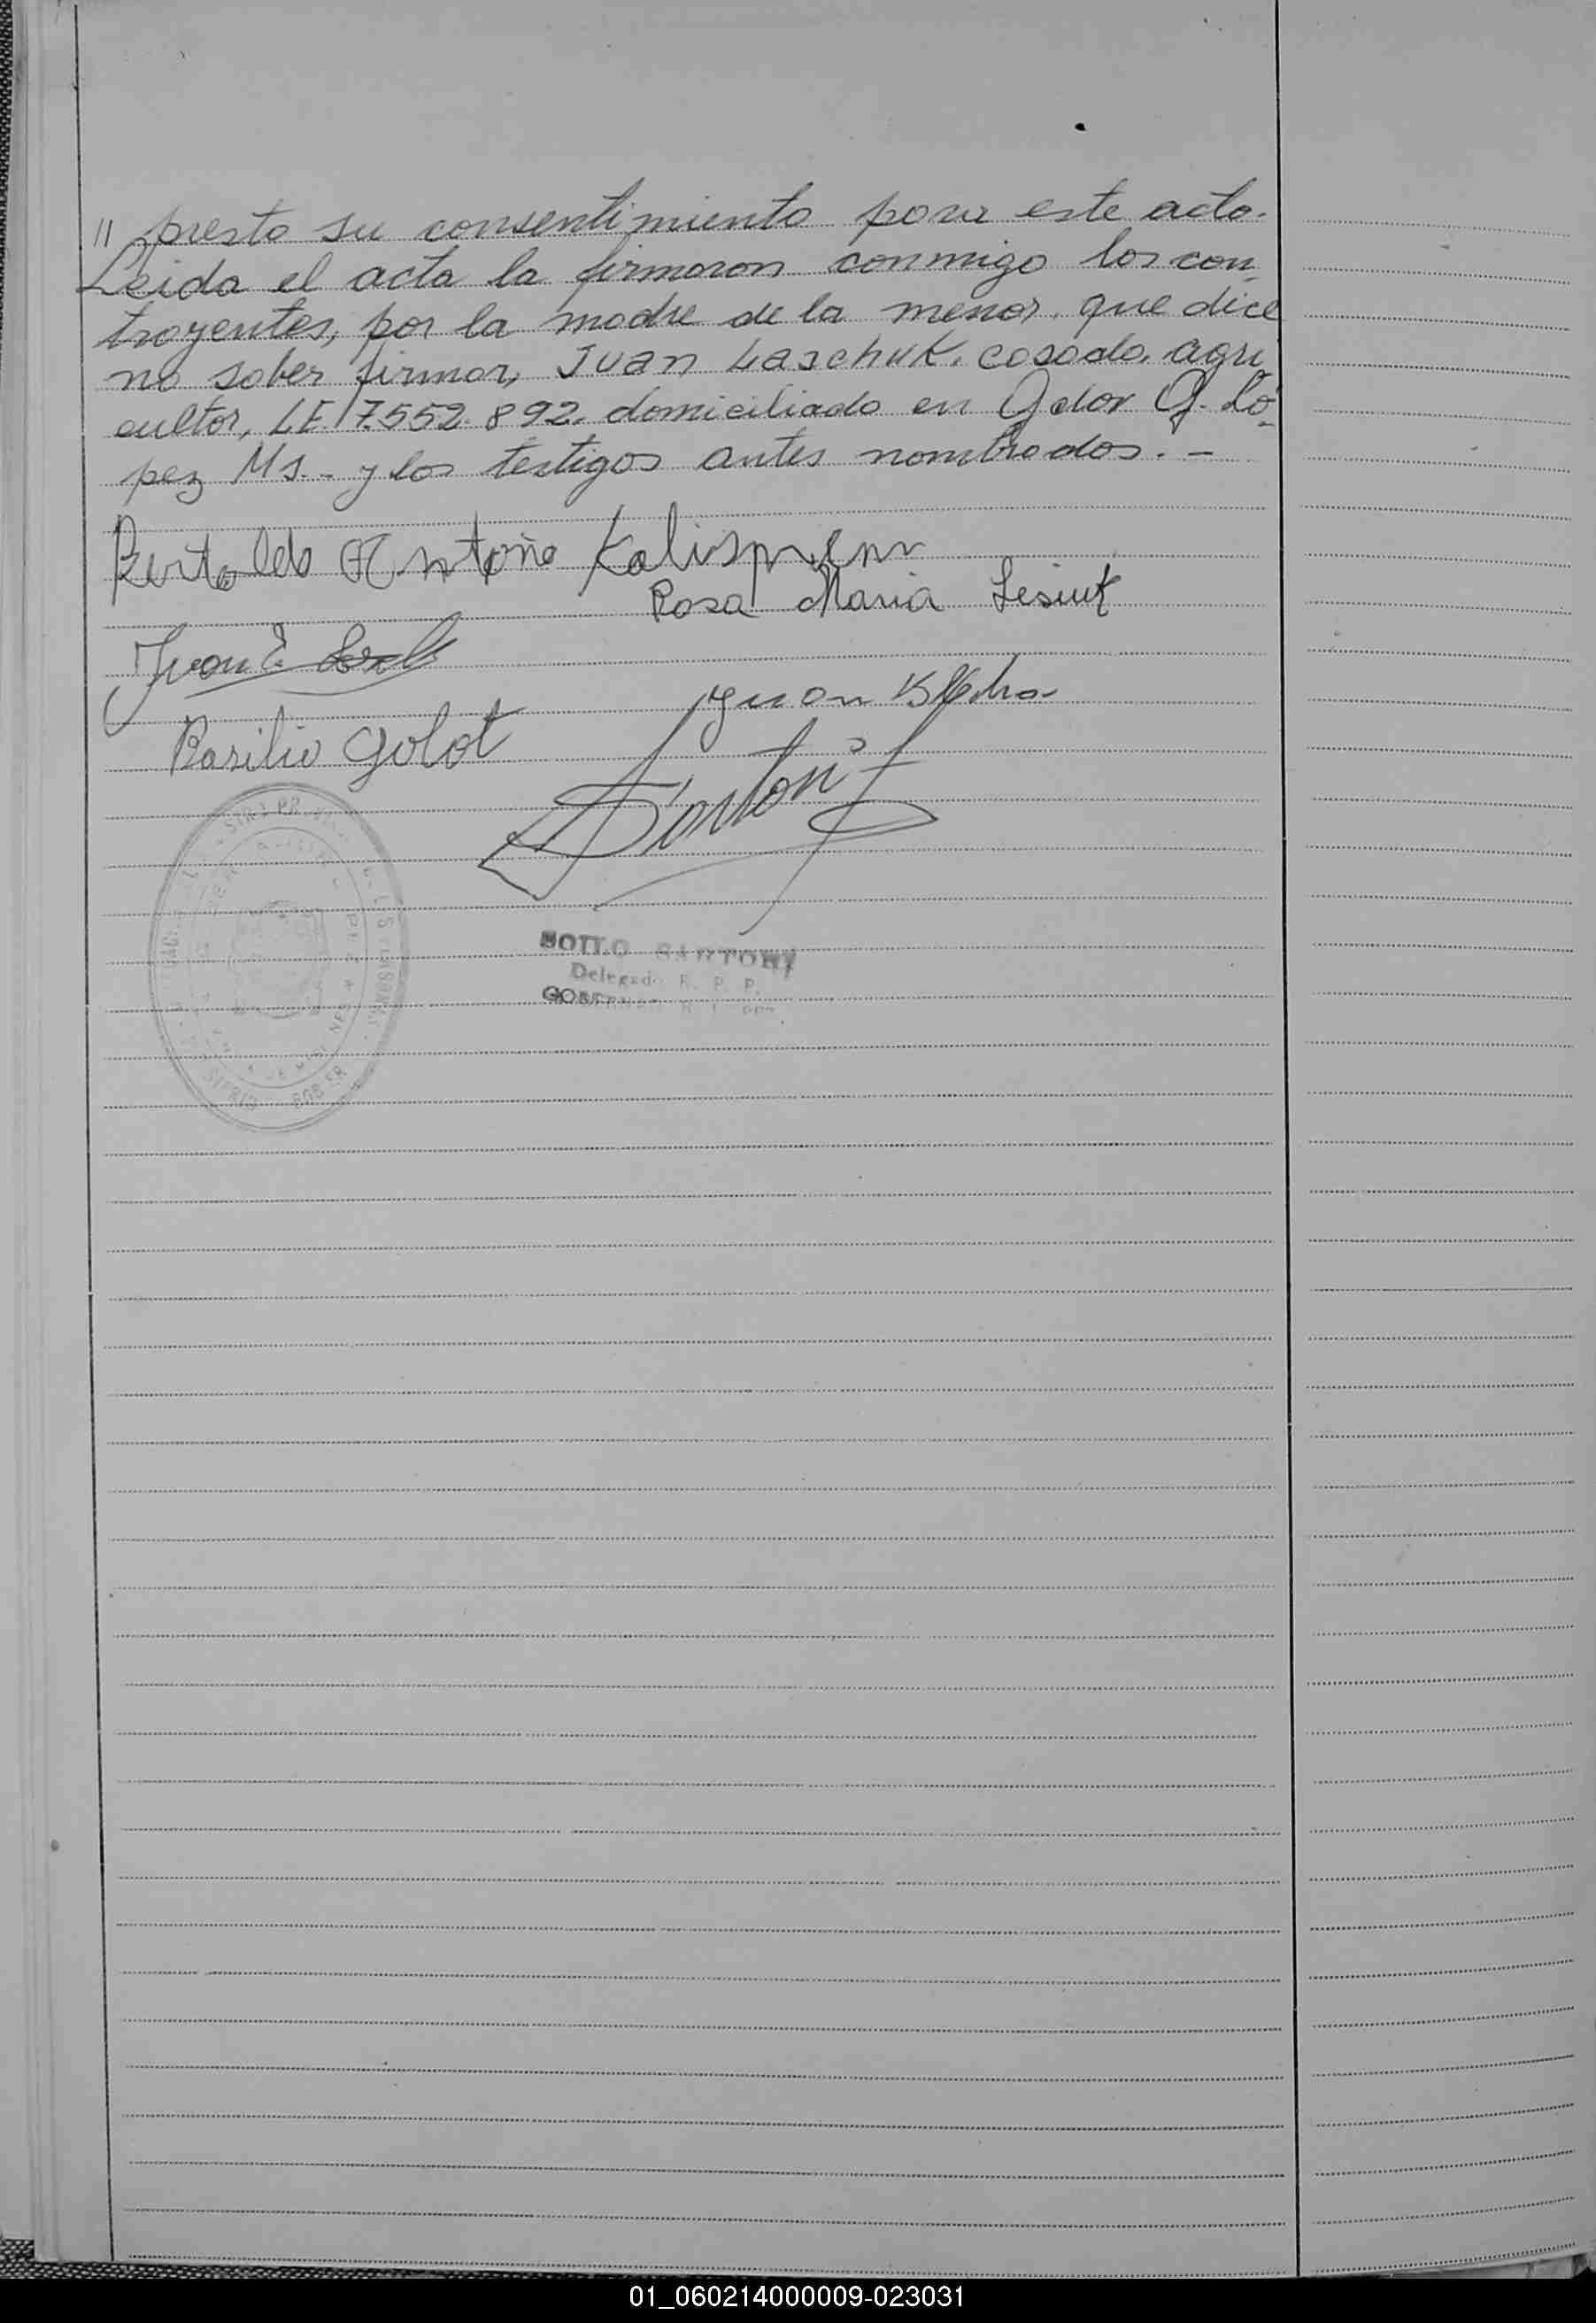 " presto su consentimiento para este acto.
Leida el acta la firmaron conmigo los con
trayentes, por la madre de la menor, que dice
no saber firmar, Juan Laschuk. casado. agri
cultor, L.E. 7.552.892. domiciliado en Gdor G. Ló
pez Ms.- y los testigos antes nombrados.-
Bertoldo Antonio
Rosa Maria Lesiuk
Juan E.
Juan
Basilio Golot
Santori
SANTORI
Delegado R. P. P.
01_060214000009-023031